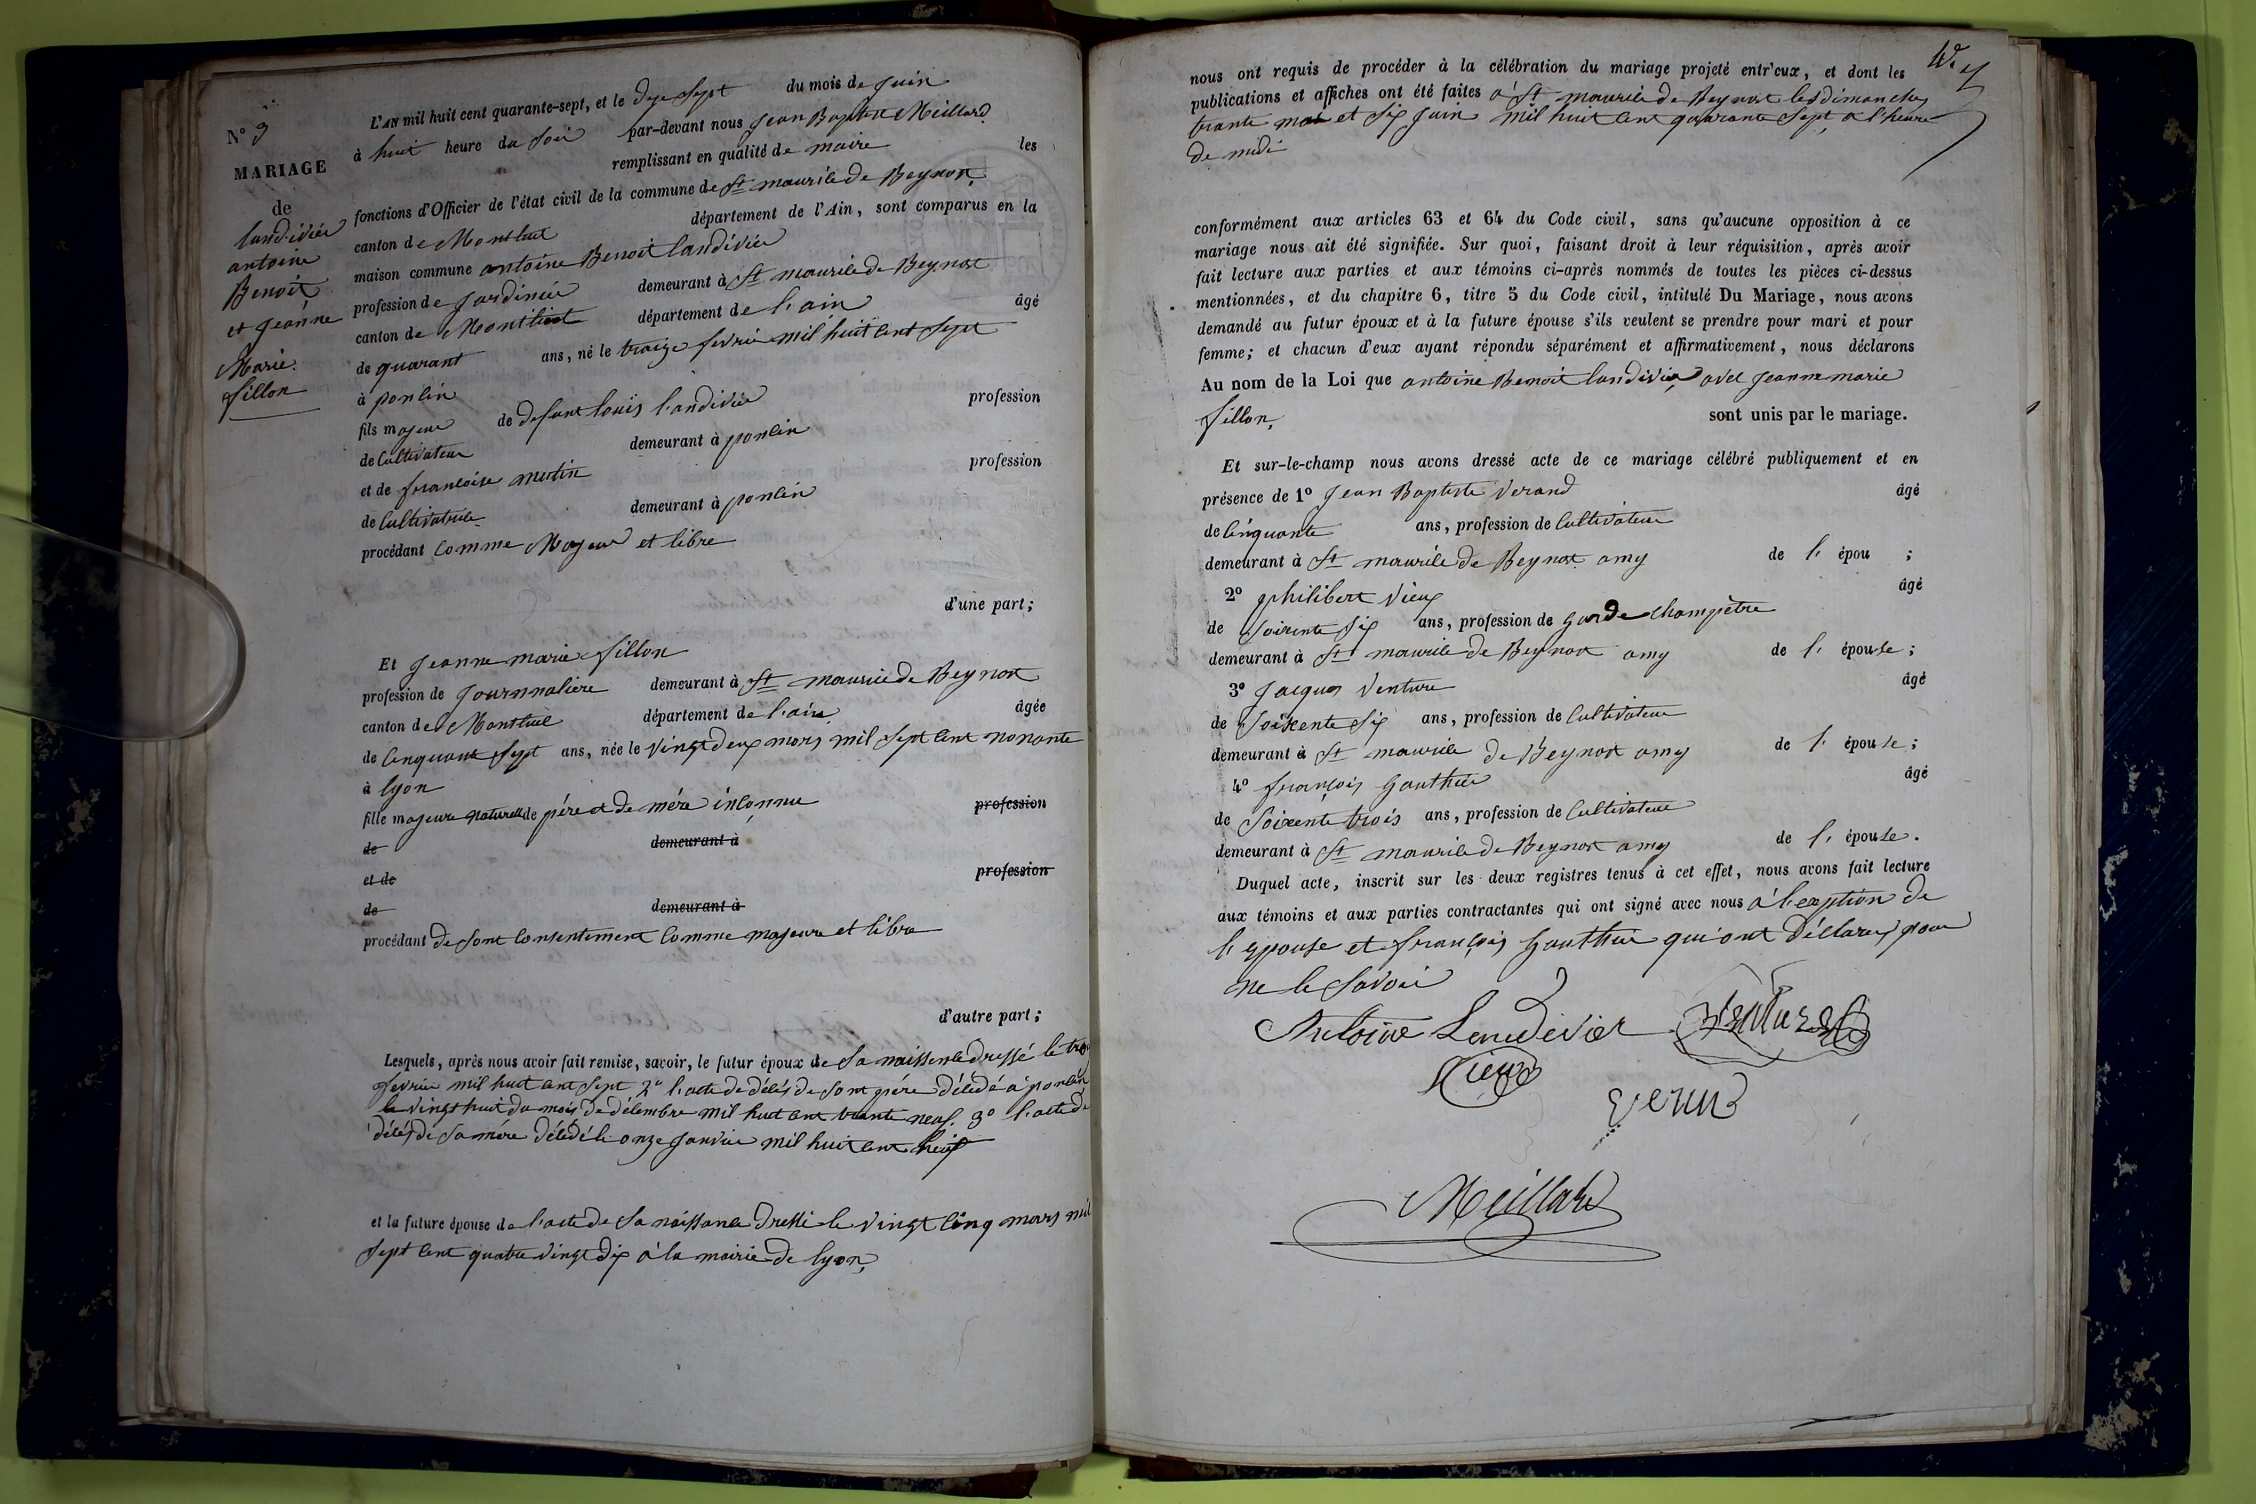 N° 9
MARIAGE
de
landivier
antoine
Benoit
et Jeanne
Marie
fillon
L'AN mil huit cent quarante-sept, et le dye sept du mois de Juin
à huit heure du Soir par-devant nous Jean Baptiste Meillard
remplissant en qualité de maire les
fonctions d'Officier de l'état civil de la commune de St maurice de Beynost
canton de Montluel département de l'Ain, sont comparus en la
maison commune antoine Benoit landivier
profession de Jardinier demeurant à St maurice de Beynost
canton de Montluel département de l'ain âgé
de quarant ans, né le traize fevrier mil huit cent sept
à poncin
fils majeur de defunt louis landivier profession
de Cultivateur demeurant à poncin
et de francoise mertin profession
de Cultivatrice demeurant à poncin
procédant comme Majeur et libre
d'une part;
Et Jeanne marie fillon
profession de Journnaliere demeurant à St maurice de Beynost
canton de Montluel département de l'ain âgée
de cinquant sept ans, née le vingt deux mars mil sept cent nonante
à lyon
fille majeure naturelle de père et de mére inconnu profession
de demeurant à
et de profession
de demeurant à
procédant de sont consentement comme majeure et libre
d'autre part;
Lesquels, après nous avoir fait remise, savoir, le futur époux de Sa naissence dressé le
fevrier mil huit cent sept 2° l'acte de décés de sont pére décédé a poncin
le vingt huit du mois de décembre mil huit cent trante neuf. 3° l'acte de
décés de sa mére décédé le onze Janvier mil huit cent
et la future épouse de l'acte de sa naissance dressé le vingt cinq mars mil
sept cent quatre vingt dix à la mairie de lyon,
nous ont requis de procéder à la célébration du mariage projeté entr'eux, et dont les
publications et affiches ont été faites à St maurice de Beynost les dimanches
trante mai et six Juin mil huit cent quarante sept, a l'heure
de midi
conformément aux articles 63 et 64 du Code civil, sans qu'aucune opposition à ce
mariage nous ait été signifiée. Sur quoi, faisant droit à leur réquisition, après avoir
fait lecture aux parties et aux témoins ci-après nommés de toutes les pièces ci-dessus
mentionnées, et du chapitre 6, titre 5 du Code civil, intitulé Du Mariage, nous avons
demandé au futur époux et à la future épouse s'ils veulent se prendre pour mari et pour
femme; et chacun d'eux ayant répondu séparément et affirmativement, nous déclarons
Au nom de la Loi que antoine Benoit landivier avec Jeanne marie
fillon, sont unis par le mariage.
Et sur-le-champ nous avons dressé acte de ce mariage célébré publiquement et en
présence de 1° Jean Baptiste Verand âgé
de cinquante ans, profession de Cultivateur
demeurant à St maurice de Beynost amy de l' épou ;
2° philibert Vieux âgé
de soixente six ans, profession de garde champêtre
demeurant à St maurice de Beynost amy de l' épouse ;
3° Jacques Venture âgé
de soixente six ans, profession de Cultivateur
demeurant à St maurice de Beynost amy de l' épouse ;
4° françois Gauthier âgé
de soixente trois ans, profession de Cultivateur
demeurant à St maurice de Beynost amy de l' épouse.
Duquel acte, inscrit sur les deux registres tenus à cet effet, nous avons fait lecture
aux témoins et aux parties contractantes qui ont signé avec nous à l'exeption de
l'epouse et françois Gauthier qui ont déclaré pour
ne le savoir
Antoine Lendivier Venture
Vieux
Verand
Meillard